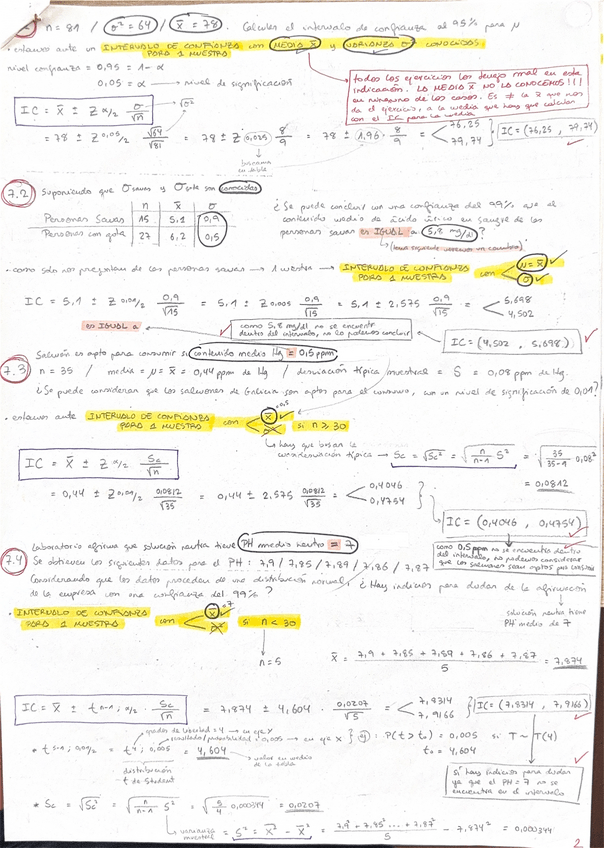 n = 81 / σ² = 64 / x̄ = 78. Calcular el intervalo de confianza al 95% para μ
• estamos ante un INTERVALO DE CONFIANZA PARA 1 MUESTRA con MEDIA x̄ y VARIANZA σ² CONOCIDAS
nivel confianza = 0,95 = 1 - α
0,05 = α → nivel de significación
todos los ejercicios los tengo mal en esta
indicación. LA MEDIA x̄ NO LA CONOCEMOS!!!
en ninguno de los casos. Es ≠ la x̄ que nos
da el ejercicio, a la media que hay que calcular
con el IC para la media
IC = x̄ ± Z α/2 σ/√n → √σ²
= 78 ± Z 0,05/2 √64/√81 = 78 ± Z 0,025 8/9 = 78 ± 1,96 · 8/9 = < 76,25 79,74 } IC = (76,25 , 79,74)
buscamos en tabla
7.2 Suponiendo que σ sanas y σ gota son conocidas
n x̄ σ
Personas sanas 15 5,1 0,9
Personas con gota 27 6,2 0,5
¿Se puede concluir con una confianza del 99% que el
contenido medio de ácido úrico en sangre de las
personas sanas es IGUAL a 5,8 mg/dl?
• como solo nos preguntan de las personas sanas → 1 muestra → INTERVALO DE CONFIANZA PARA 1 MUESTRA con < μ = x̄ ✓ σ ✓
IC = 5,1 ± Z 0,01/2 0,9/√15 = 5,1 ± Z 0,005 0,9/√15 = 5,1 ± 2,575 0,9/√15 = < 5,698 4,502
es IGUAL a
como 5,8 mg/dl no se encuentra
dentro del intervalo, no lo podemos concluir
IC = (4,502 , 5,698)
7.3 Salmón es apto para consumir si contenido medio Hg = 0,5 ppm
n = 35 / media = μ = x̄ = 0,44 ppm de Hg / desviación típica muestral = S = 0,08 ppm de Hg.
¿Se puede considerar que los salmones de Galicia son aptos para el consumo, con un nivel de significación de 0,01?
• estamos ante INTERVALO DE CONFIANZA PARA 1 MUESTRA con < x̄ si n ≥ 30
hay que buscar la
cuasidesviación típica → Sc = √Sc² = √ n/n-1 S² = √ 35/35-1 0,08²
= 0,0812
IC = x̄ ± Z α/2 Sc/√n
= 0,44 ± Z 0,01/2 0,0812/√35 = 0,44 ± 2,575 0,0812/√35 = < 0,4046 0,4754
IC = (0,4046 , 0,4754)
como 0,5 ppm no se encuentra dentro
del intervalo, no podemos considerar
que los salmones sean aptos para consumo
7.4 Laboratorio afirma que solución neutra tiene PH medio neutro = 7
Se obtienen los siguientes datos para el PH: 7,9 / 7,85 / 7,89 / 7,86 / 7,87
Considerando que los datos proceden de una distribución normal, ¿Hay indicios para dudar de la afirmación
de la empresa con una confianza del 99%?
solución neutra tiene
PH medio de 7
• INTERVALO DE CONFIANZA PARA 1 MUESTRA con < x̄ si n < 30
n = 5
x̄ = 7,9 + 7,85 + 7,89 + 7,86 + 7,87 / 5 = 7,874
IC = x̄ ± t n-1; α/2 · Sc/√n = 7,874 ± 4,604 · 0,0207/√5 = < 7,8314 7,9166 } IC = (7,8314 , 7,9166)
grados de libertad = 4 → en eje Y
resultados/probabilidad = 0,005 → en eje X
* t 5-1; 0,01/2 = t 4; 0,005 = 4,604
P(t > t₀) = 0,005 si T ~ T(4)
t₀ = 4,604
distribución
t de Student
valor en medio
de la tabla
sí hay indicios para dudar
ya que el PH = 7 no se
encuentra en el intervalo
* Sc = √Sc² = √ n/n-1 S² = √ 5/4 0,000344 = 0,0207
varianza
muestral = S² = x̄² - x̄² = 7,9² + 7,85² ... + 7,87² / 5 - 7,874² = 0,000344
2